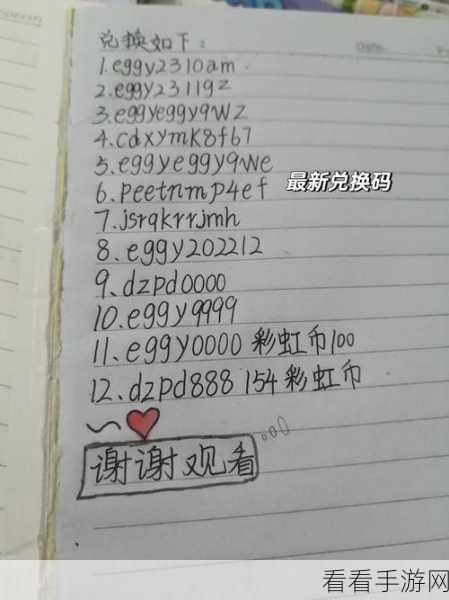 兑换如下：
1.eggy2310am
2.eggy23119z
3.eggyeggy9wz
4.cdxymk8f67
5.eggyeggy9we
6.peetnmp4ef
最新兑换码
7.jsrqkrrjmh
8.eggy202212
9.dzpd0000
10.eggy9999
11.eggy0000 彩虹币100
12.dzpd888 154彩虹币
谢谢观看
看看手游网